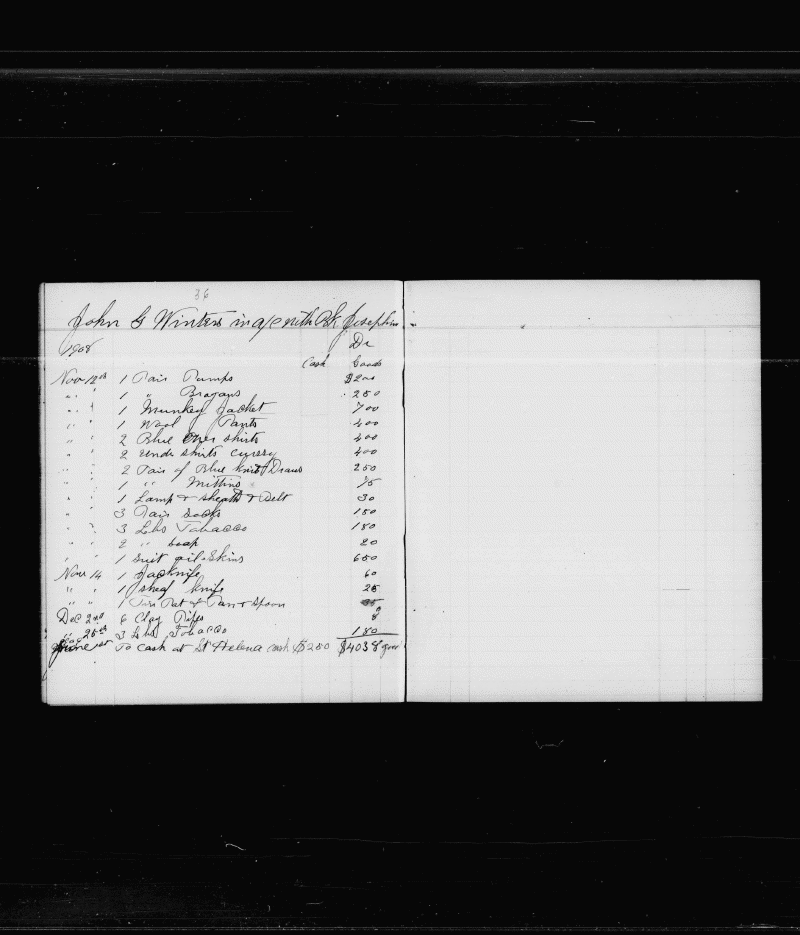 36
John G Winters in a/c with Bk Josephine
1908 Dr
Cash Goods
Nov 12th 1 Pair Pumps $200
" " 1 " Brogans 250
" " 1 Munkey Jacket 700
" " 1 Wool Pants 400
" " 2 Blue Over shirts 400
" " 2 Under shirts 400
" " 2 Pair of Blue knit Draws 250
" " 1 " Mittins 75
" " 1 Lamp & sheath & Belt 30
" " 3 Pair Socks 150
" " 3 Lbs Tobacco 180
" " 2 " Soap 20
" " 1 Suit oil Skins 650
Nov 14 1 Jacknife 60
" " 1 sheaf knife 25
" " 1 Pot & Pan & Spoon
Dec 2nd 6 Clay Pipes 8
" 25th 3 Lbs Tobacco 180
June To Cash at St Helena cash $250 $4038